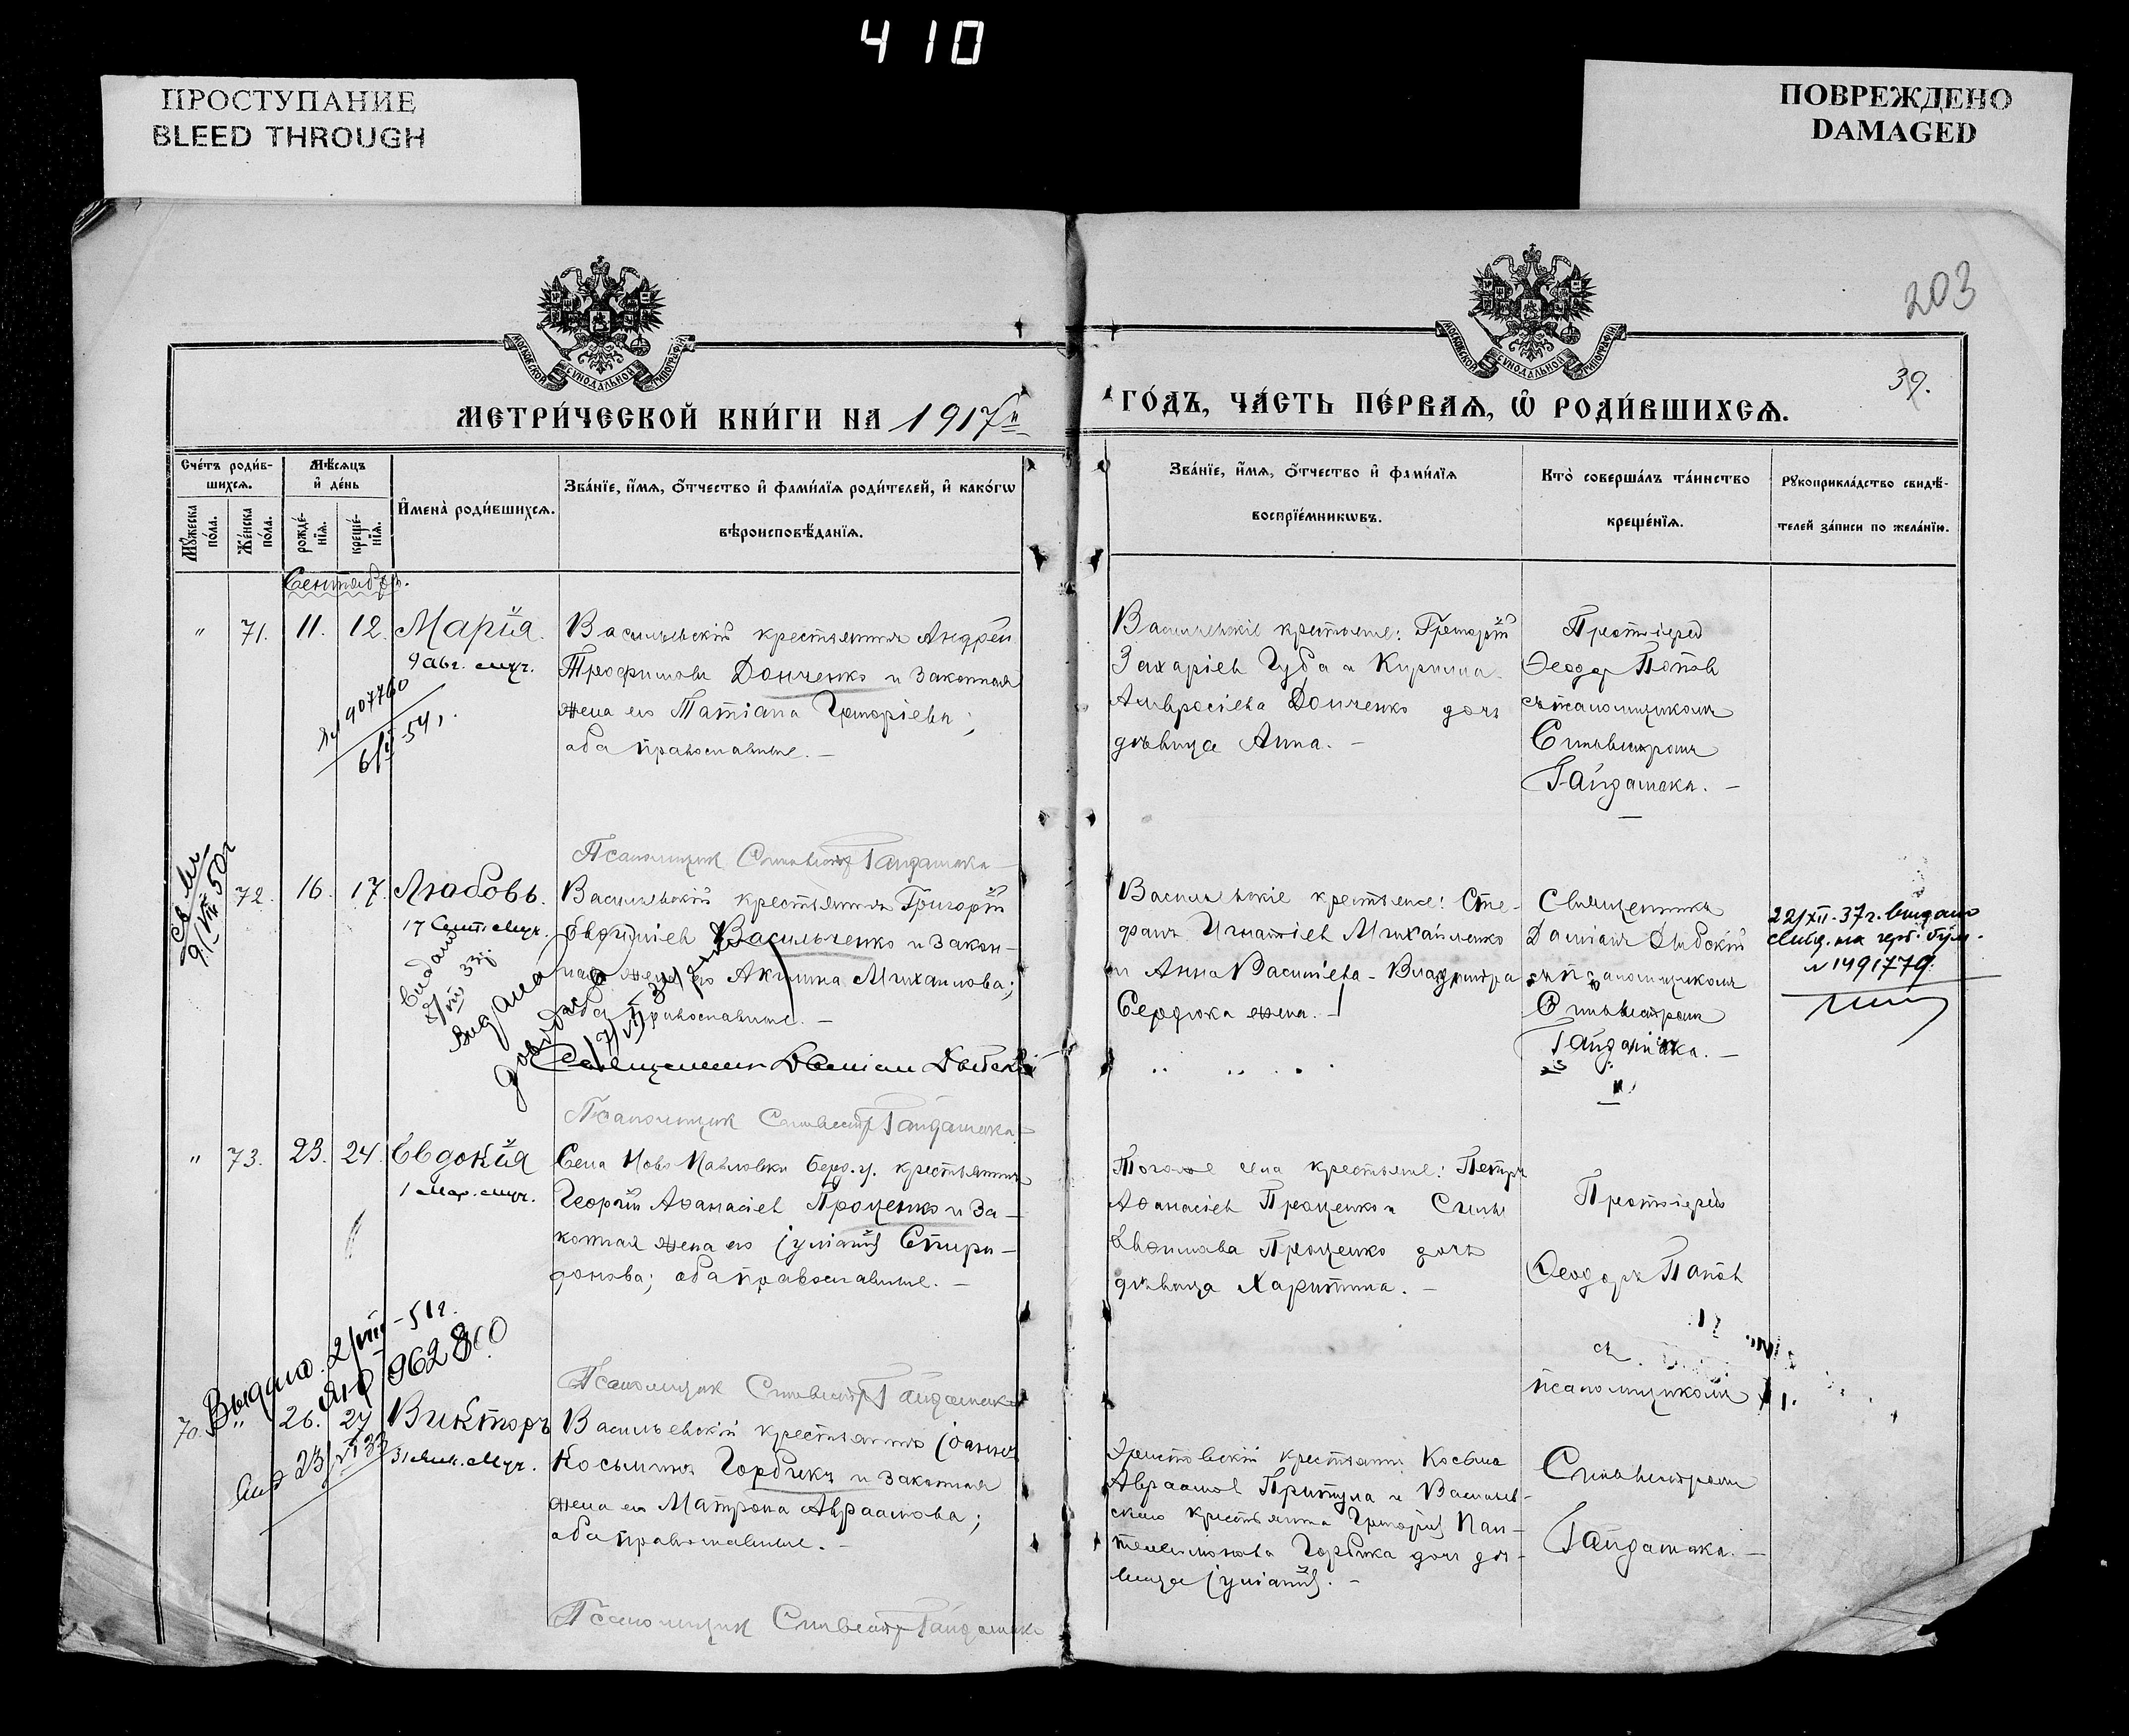 410
ПРОСТУПАНИЕ
BLEED THROUGH
ПОВРЕЖДЕНО
DAMAGED
203
39.
МОСКОВСКОЙ СѴНОДАЛЬНОЙ ТИПОГРАФІИ
МОСКОВСКОЙ СѴНОДАЛЬНОЙ ТИПОГРАФІИ
МЕТРИ́ЧЕСКОЙ КНИ́ГИ НА 1917й
ГО́ДЪ, ЧА́СТЬ ПЕ́РВАѦ, Ѡ҆ РОДИ́ВШИХСѦ.
Сче́тъ роди́в-
шихсѧ.
Мꙋ́жеска по́ла.
Же́нска по́ла.
Мѣ́сѧцъ
и҆ де́нь
рожде́-
нїѧ.
креще́-
нїѧ.
И҆мена̀ роди́вшихсѧ.
Зва́нїе, и҆́мѧ, ѻ҆́тчество и҆ фами́лїѧ роди́телей, и҆ како́гѡ
вѣроисповѣ́данїѧ.
Зва́нїе, и҆́мѧ, ѻ҆́тчество и҆ фами́лїѧ
воспрїе́мникѡвъ.
Кто̀ соверша́лъ та́инство
креще́нїѧ.
Рꙋкоприкла́дство свидѣ́-
телей за́писи по жела́нїю.
Сентябрь.
" 71. 11. 12. Марія.
9 авг. муч.
907760
6/V 54 г.
Васильевскій крестьянинъ Андрей
Трофимовъ Донченко и законная
жена его Татіана Григоріева;
оба православные. –
Васильевскіе крестьяне: Григорій
Захаріевъ Губа и Кирилла
Амвросіева Донченко дочь
дѣвица Анна. –
Протоіерей
Ѳеодоръ Поповъ
съ псаломщикомъ
Сильвестромъ
Гайдамака. –
Псаломщикъ Сильвестръ Гайдамака
72. 16. 17. Любовь.
17 Сент. муч.
9/VII 50 г
Видано
8/VIII 33 г
Видана
довідка
Васильевскій крестьянинъ Григорій
Васильченко и закон-
ная жена его Акилина Михаилова;
оба православные. –
Васильевскіе крестьяне: Сте-
фанъ Игнатіевъ Михайленко
и Анна Василіева – Владиміра
Сердюка жена. –
Священникъ
Даміанъ Дибскій
съ псаломщикомъ
Сильвестромъ
Гайдамака. –
22/XII-37 г. видано
свид. на герб. бум.
№ 1491779
Священникъ Даміанъ Дибскій
Псаломщикъ Сильвестръ Гайдамака
" 73. 23. 24. Евдокія
1 Мар. муч.
Села Ново Павловки Берд. у. крестьянинъ
Георгій Аѳанасіевъ Проценко и за-
конная жена его Іуліанія Спири-
донова; оба православные. –
Того же села крестьяне: Петръ
Аѳанасіевъ Проценко и Силы
Проценко дочь
дѣвица Харитина. –
Протоіерей
Ѳеодоръ Поповъ
съ
псаломщикомъ
Сильвестромъ
Гайдамака. –
Выдано 2/VIII-51 г.
962800
Псаломщикъ Сильвестръ Гайдамака
70. " 26. 27 Викторъ
31 Янв. Муч.
23/VI 33
Васильевскій крестьянинъ Іоаннъ
Косьминъ Горбикъ и законная
жена его Матрона Авраамова;
оба православные. –
крестьянинъ Косьма
Авраамовъ Притула и Васильев-
скаго крестьянина Григорія Пан-
телеимонова Горбика дочь дѣ-
вица Іуліанія. –
Псаломщикъ Сильвестръ Гайдамака